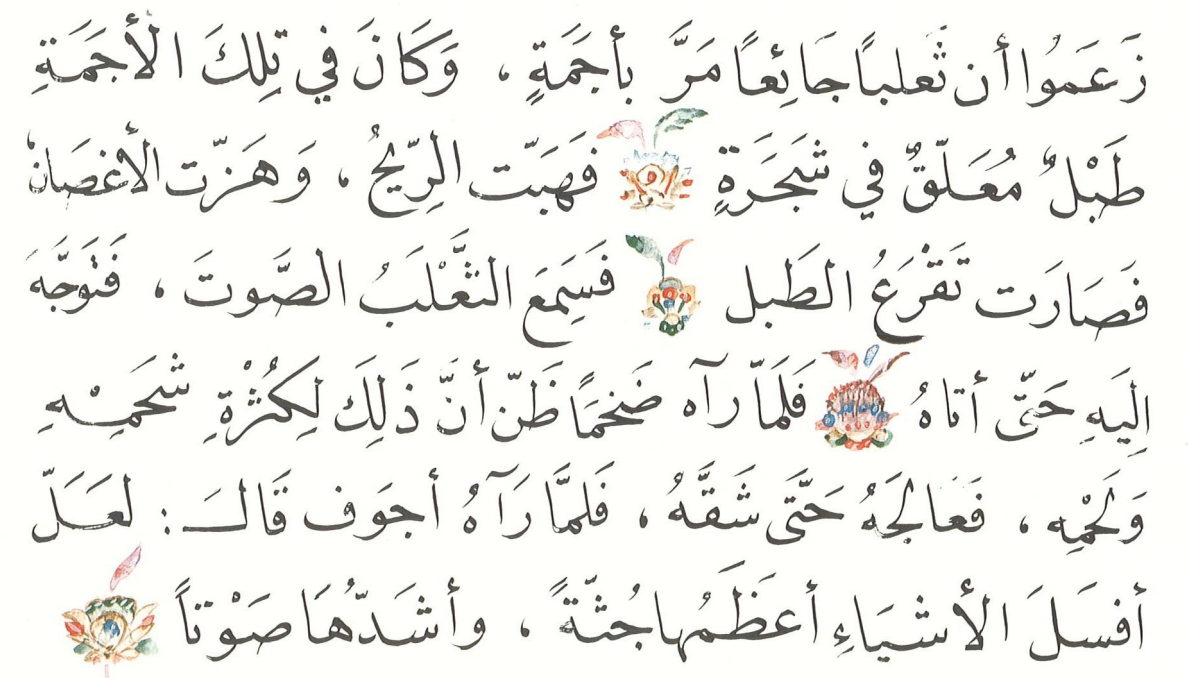 زَعَمُوا أن ثَعلباً جَائِعاً مَرَّ بأجَمَةٍ ، وَكَانَ في تِلكَ الأجَمَةِ
طَبْلٌ مُعَلّقٌ في شَجَرَةٍ فَهَبّت الرِّيحُ ، وَهَزّت الأغصَانُ
فَصَارَت تَقْرَعُ الطَبل فَسَمِعَ الثَّعْلَبُ الصَّوتَ ، فَتَوَجَّهَ
إلَيهِ حَتّى أتاهُ فَلَمّا رآه ضَخمًا ظَنّ أنّ ذَلِكَ لِكثْرَةِ شَحمِهِ
وَلَحْمِهِ ، فَعَالجَهُ حَتَّى شَقَّهُ ، فَلَمَّا رَآهُ أجوَف قَالَ : لَعَلّ
أفسَلَ الأشيَاءِ أعظَمُها جُثّةً ، وأشَدّهَُا صَوْتاً